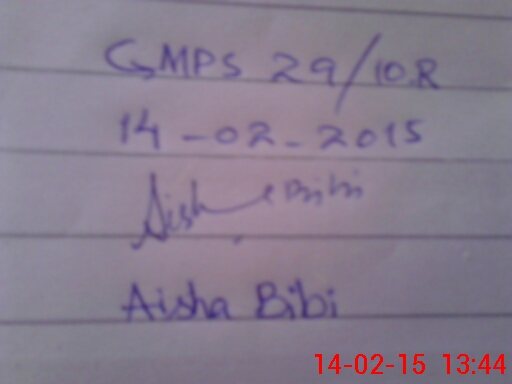 GMPS 29/10R
14-02-2015
Aisha Bibi
Aisha Bibi
14-02-15 13:44